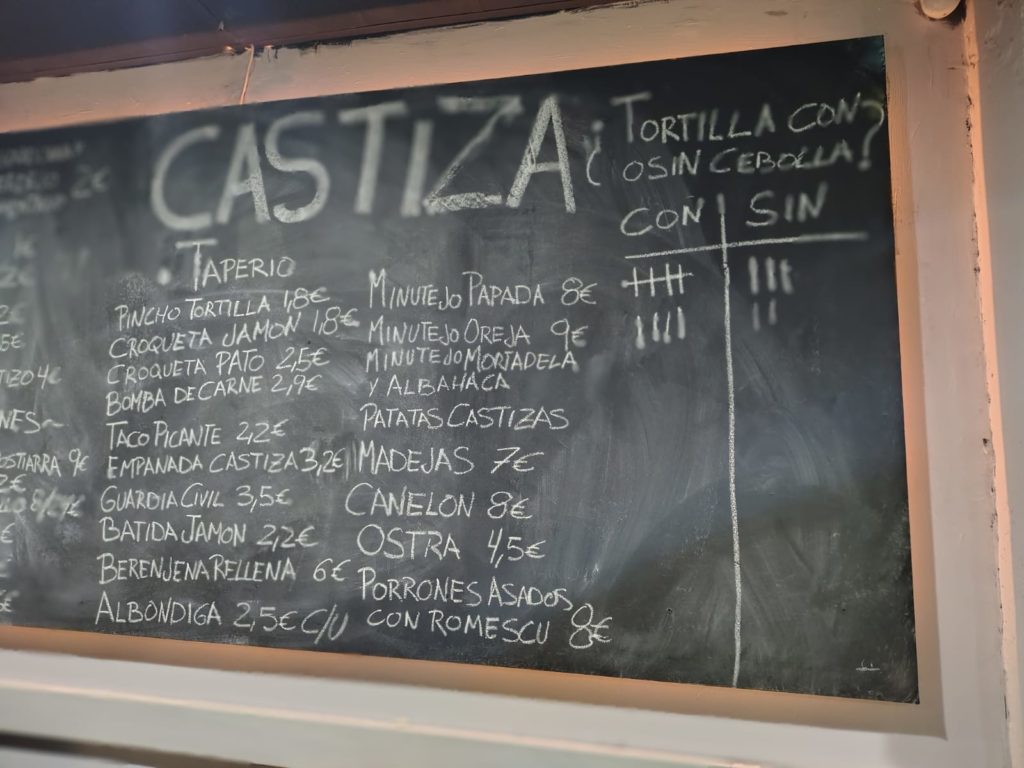 CASTIZA
¿TORTILLA CON
O SIN CEBOLLA?
CON SIN
TAPERIO
PINCHO TORTILLA 1,8€
CROQUETA JAMON 1,8€
CROQUETA PATO 2,5€
BOMBA DE CARNE 2,9€
TACO PICANTE 2,2€
EMPANADA CASTIZA 3,2€
GUARDIA CIVIL 3,5€
BATIDA JAMON 2,2€
BERENJENA RELLENA 6€
ALBÓNDIGA 2,5€ C/U
MINUTEJO PAPADA 8€
MINUTEJO OREJA 9€
MINUTEJO MORTADELA
Y ALBAHACA
PATATAS CASTIZAS
MADEJAS 7€
CANELON 8€
OSTRA 4,5€
PORRONES ASADOS
CON ROMESCU 8€
2€